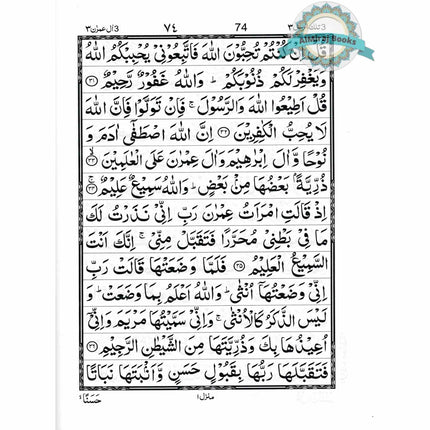 ٣ اٰل عمرٰن ٣ ٧٤ 74 تلك ٣
AlMiraj Books
قُلْ اِنْ كُنْتُمْ تُحِبُّوْنَ اللّٰهَ فَاتَّبِعُوْنِيْ يُحْبِبْكُمُ اللّٰهُ
وَيَغْفِرْ لَكُمْ ذُنُوْبَكُمْ ؕ وَاللّٰهُ غَفُوْرٌ رَّحِيْمٌ ﴿٣١﴾
قُلْ اَطِيْعُوا اللّٰهَ وَالرَّسُوْلَ ۚ فَاِنْ تَوَلَّوْا فَاِنَّ اللّٰهَ
لَا يُحِبُّ الْكٰفِرِيْنَ ﴿٣٢﴾ اِنَّ اللّٰهَ اصْطَفٰٓى اٰدَمَ وَ
نُوْحًا وَّاٰلَ اِبْرٰهِيْمَ وَاٰلَ عِمْرٰنَ عَلَى الْعٰلَمِيْنَ ﴿٣٣﴾ۙ
ذُرِّيَّةًۢ بَعْضُهَا مِنْۢ بَعْضٍ ؕ وَاللّٰهُ سَمِيْعٌ عَلِيْمٌ ﴿٣٤﴾ۚ
اِذْ قَالَتِ امْرَاَتُ عِمْرٰنَ رَبِّ اِنِّيْ نَذَرْتُ لَكَ
مَا فِيْ بَطْنِيْ مُحَرَّرًا فَتَقَبَّلْ مِنِّيْ ۚ اِنَّكَ اَنْتَ
السَّمِيْعُ الْعَلِيْمُ ﴿٣٥﴾ فَلَمَّا وَضَعَتْهَا قَالَتْ رَبِّ
اِنِّيْ وَضَعْتُهَآ اُنْثٰى ؕ وَاللّٰهُ اَعْلَمُ بِمَا وَضَعَتْ ؕ وَ
لَيْسَ الذَّكَرُ كَالْاُنْثٰى ۚ وَاِنِّيْ سَمَّيْتُهَا مَرْيَمَ وَاِنِّيْٓ
اُعِيْذُهَا بِكَ وَذُرِّيَّتَهَا مِنَ الشَّيْطٰنِ الرَّجِيْمِ ﴿٣٦﴾
فَتَقَبَّلَهَا رَبُّهَا بِقَبُوْلٍ حَسَنٍ وَّاَنْۢبَتَهَا نَبَاتًا
منزل ١ حَسَنًا